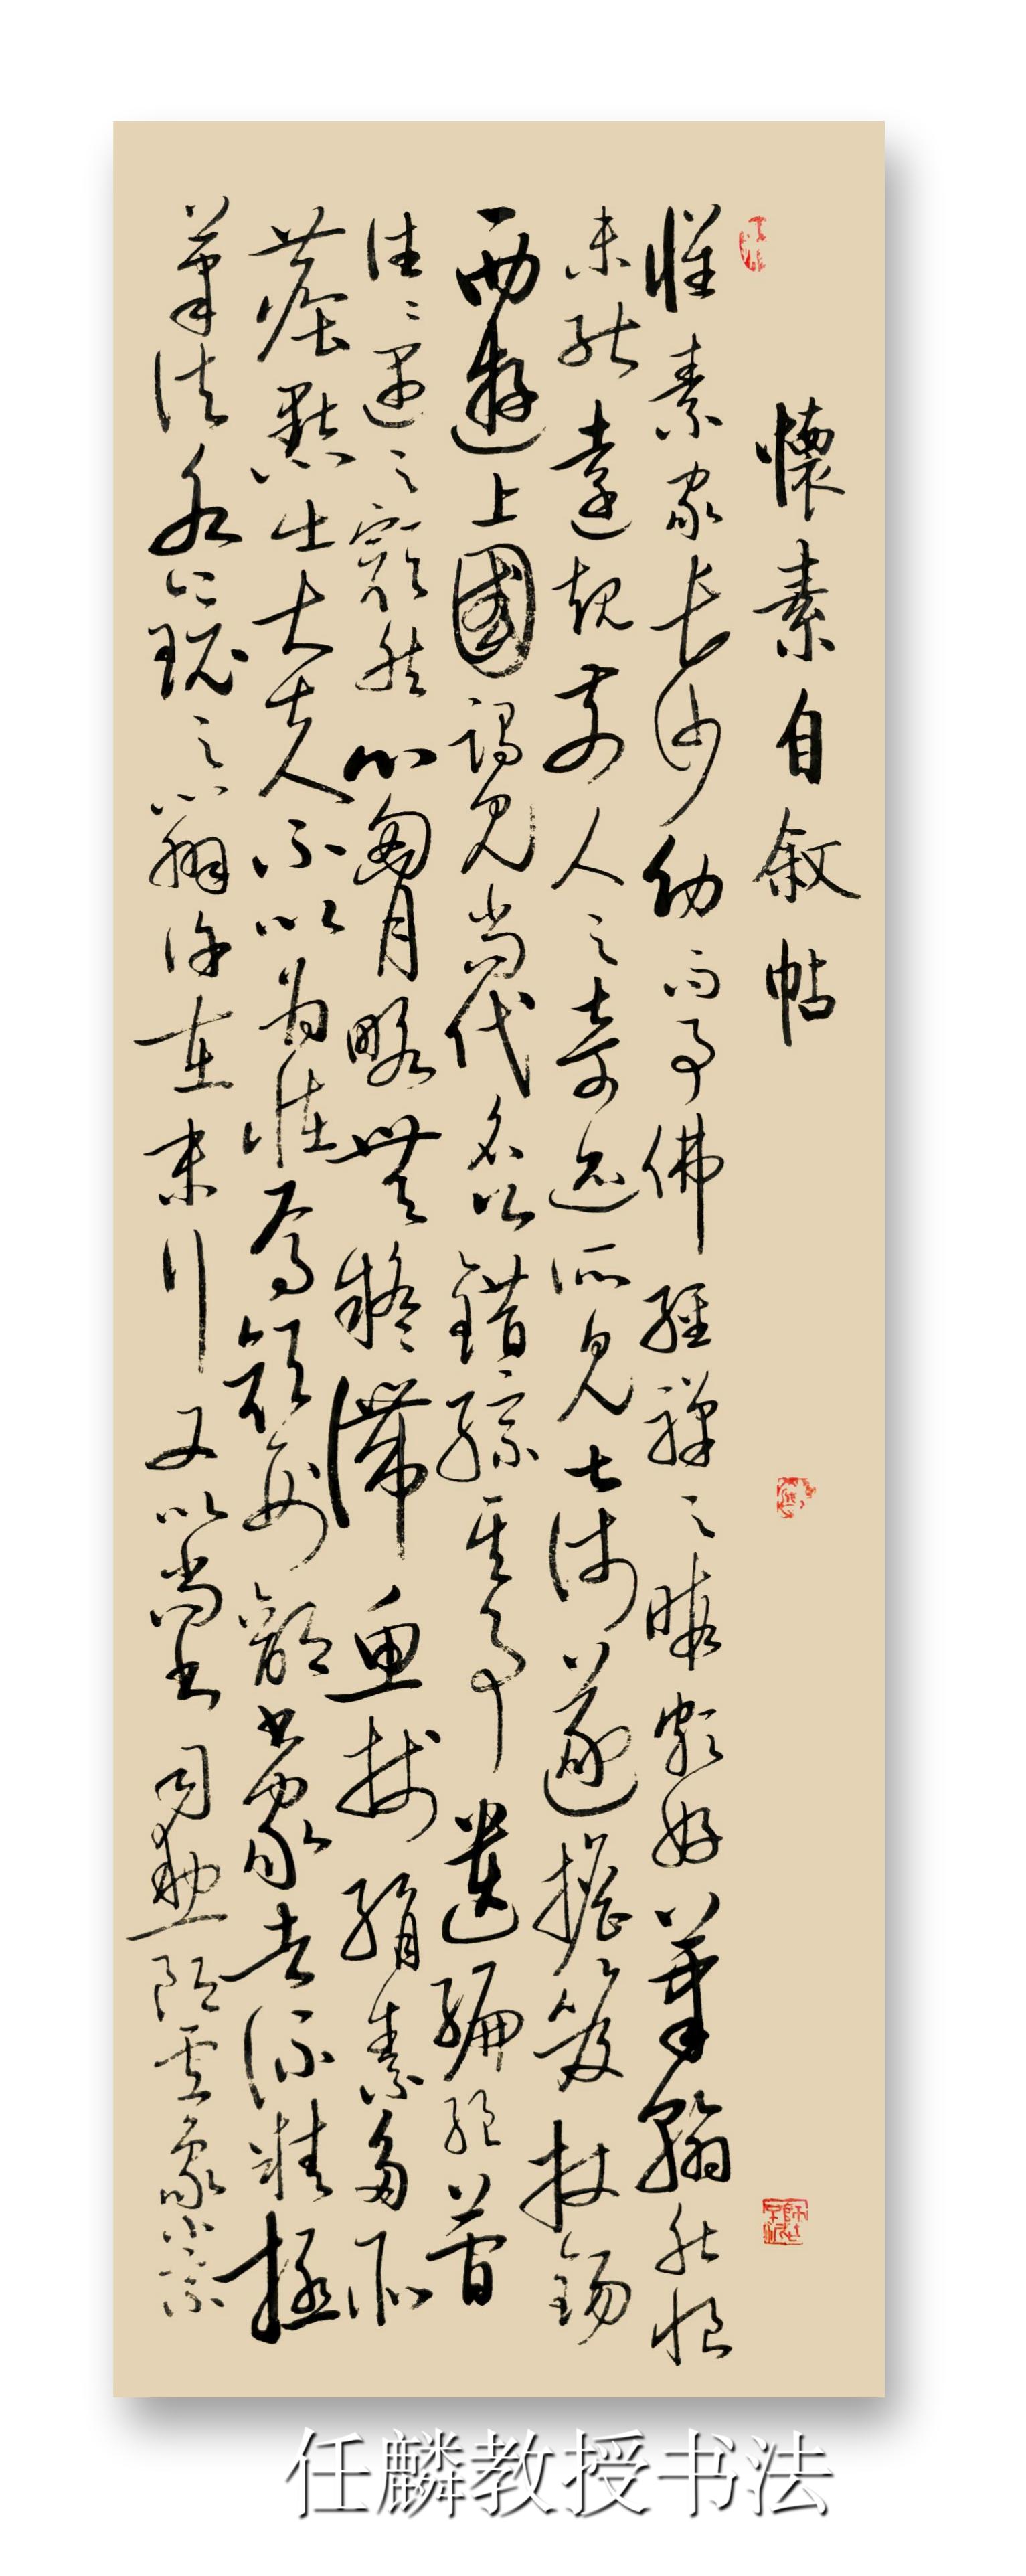 懷素自敘帖
懷素家長沙幼而事佛經禪之暇頗好筆翰然恨
未能遠覩前人之奇迹所見甚淺遂擔笈杖錫
西遊上國謁見當代名公錯綜其事遺編絕簡
往〻遇之豁然心胸略無疑滯魚牋絹素多所
塵點士大夫不以為怪焉顏刑部書家者流精極
筆法水鏡之辨許在末行又以尚書司勳郎盧象小宗
任麟教授书法